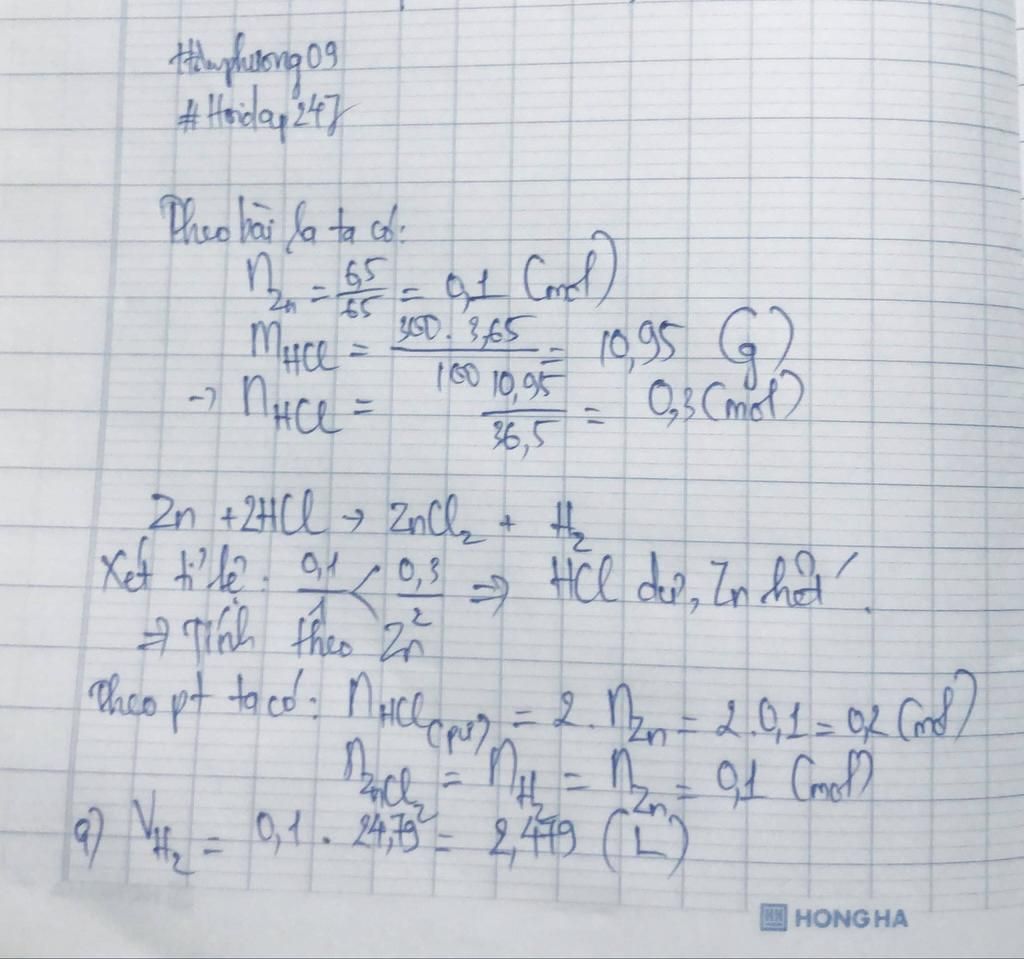 #Hoidap247
Theo bài ra ta có:
n_Zn = 6,5/65 = 0,1 (mol)
m_HCl = 300 . 3,65/100 = 10,95 (g)
→ n_HCl = 10,95/36,5 = 0,3 (mol)
Zn + 2HCl → ZnCl₂ + H₂
Xét tỉ lệ: 0,1/1 < 0,3/2 ⇒ HCl dư, Zn hết.
⇒ Tính theo Zn
Theo pt ta có: n_HCl(pư) = 2 . n_Zn = 2.0,1 = 0,2 (mol)
n_ZnCl₂ = n_H₂ = n_Zn = 0,1 (mol)
a) V_H₂ = 0,1 . 24,79 = 2,479 (L)
HONG HA